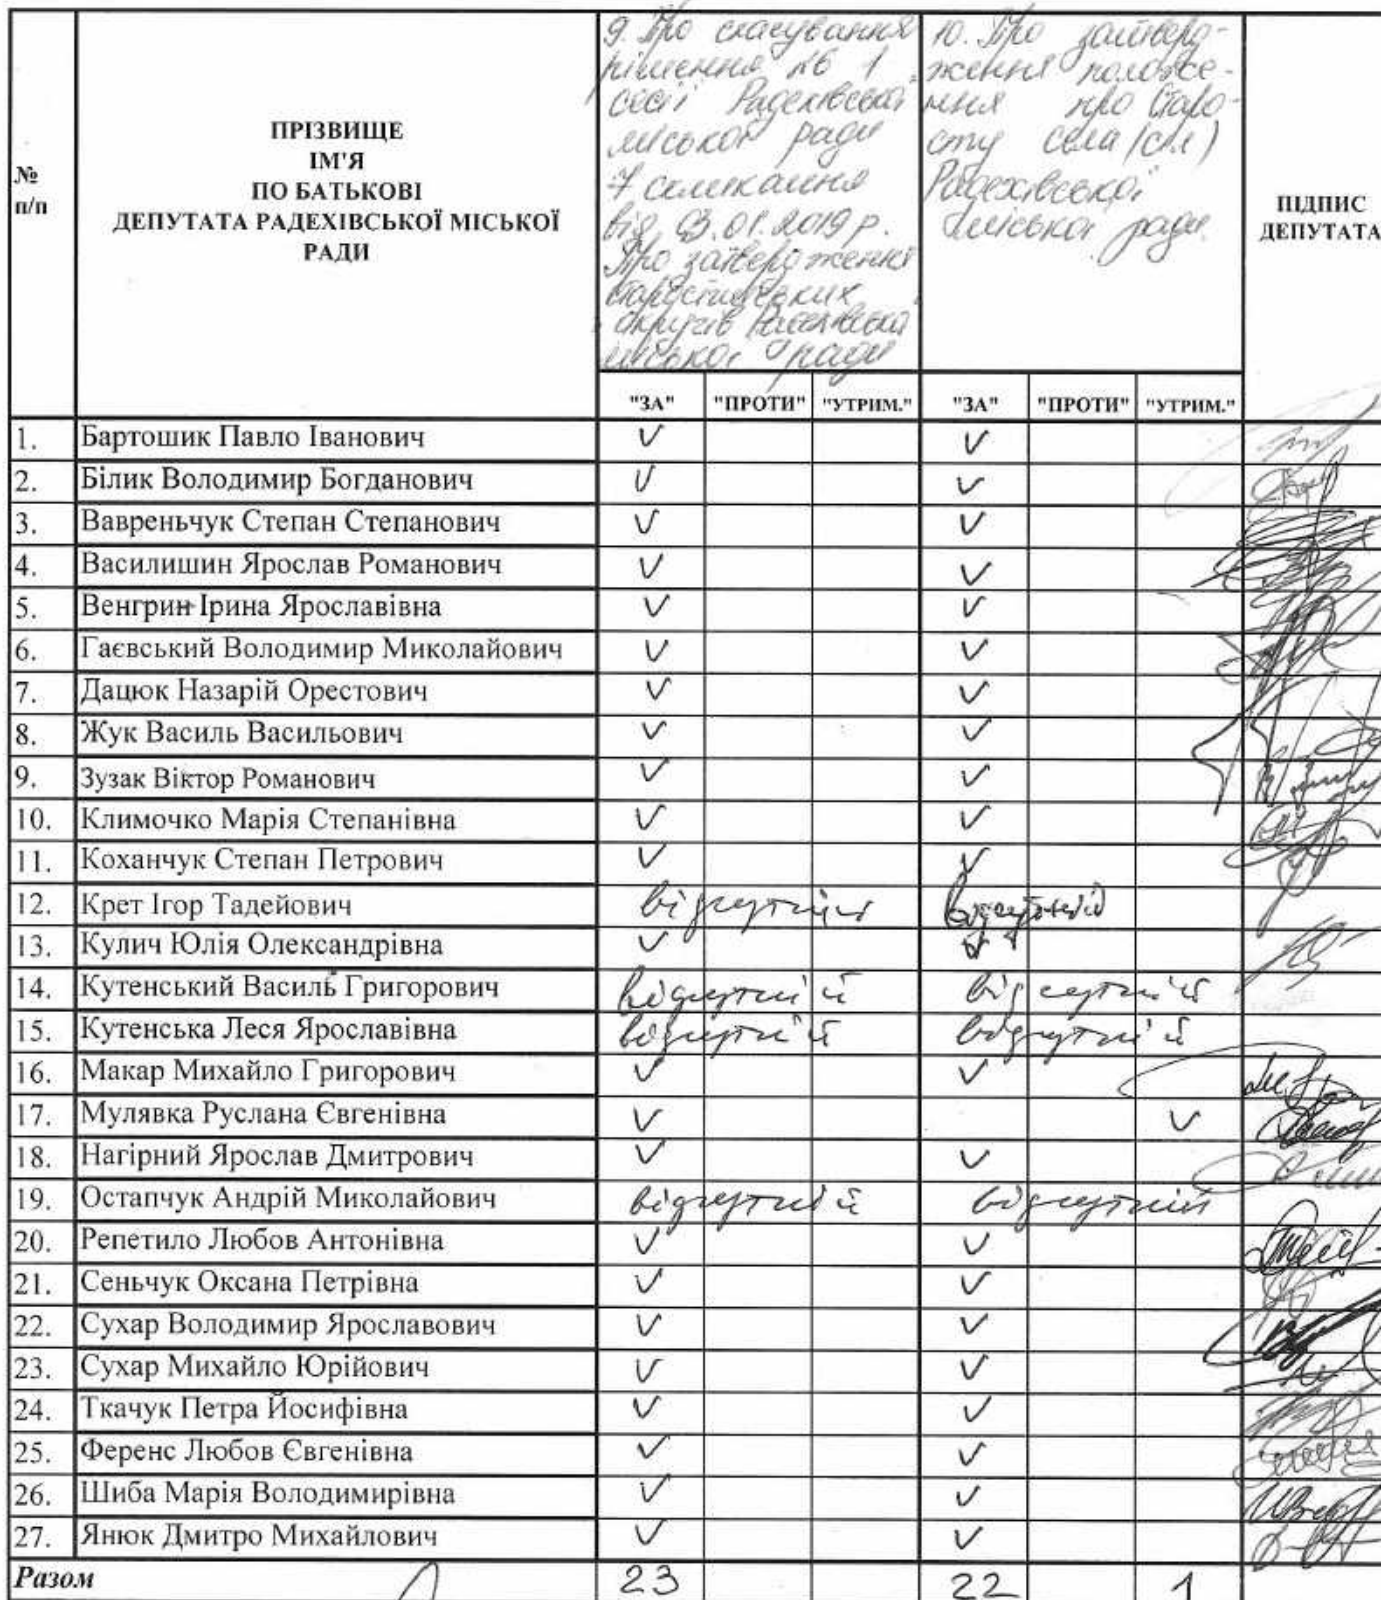 №
п/п
ПРІЗВИЩЕ
ІМ'Я
ПО БАТЬКОВІ
ДЕПУТАТА РАДЕХІВСЬКОЇ МІСЬКОЇ
РАДИ
9. Про скасування
рішення №6 1
сесії Радехівської
міської ради
7 скликання
від 03.01.2019 р.
Про затвердження
старостинських
округів Радехівської
міської ради
10. Про затверд-
ження положе-
ння про Старо-
сту села (сіл)
Радехівської
міської ради
ПІДПИС
ДЕПУТАТА
"ЗА" "ПРОТИ" "УТРИМ." "ЗА" "ПРОТИ" "УТРИМ."
1. Бартошик Павло Іванович
2. Білик Володимир Богданович
3. Вавреньчук Степан Степанович
4. Василишин Ярослав Романович
5. Венгрин Ірина Ярославівна
6. Гаєвський Володимир Миколайович
7. Дацюк Назарій Орестович
8. Жук Василь Васильович
9. Зузак Віктор Романович
10. Климочко Марія Степанівна
11. Коханчук Степан Петрович
12. Крет Ігор Тадейович відсутній відсутній
13. Кулич Юлія Олександрівна
14. Кутенський Василь Григорович відсутній відсутній
15. Кутенська Леся Ярославівна відсутній відсутній
16. Макар Михайло Григорович
17. Мулявка Руслана Євгенівна
18. Нагірний Ярослав Дмитрович
19. Остапчук Андрій Миколайович відсутній відсутній
20. Репетило Любов Антонівна
21. Сеньчук Оксана Петрівна
22. Сухар Володимир Ярославович
23. Сухар Михайло Юрійович
24. Ткачук Петра Йосифівна
25. Ференс Любов Євгенівна
26. Шиба Марія Володимирівна
27. Янюк Дмитро Михайлович
Разом 23 22 1